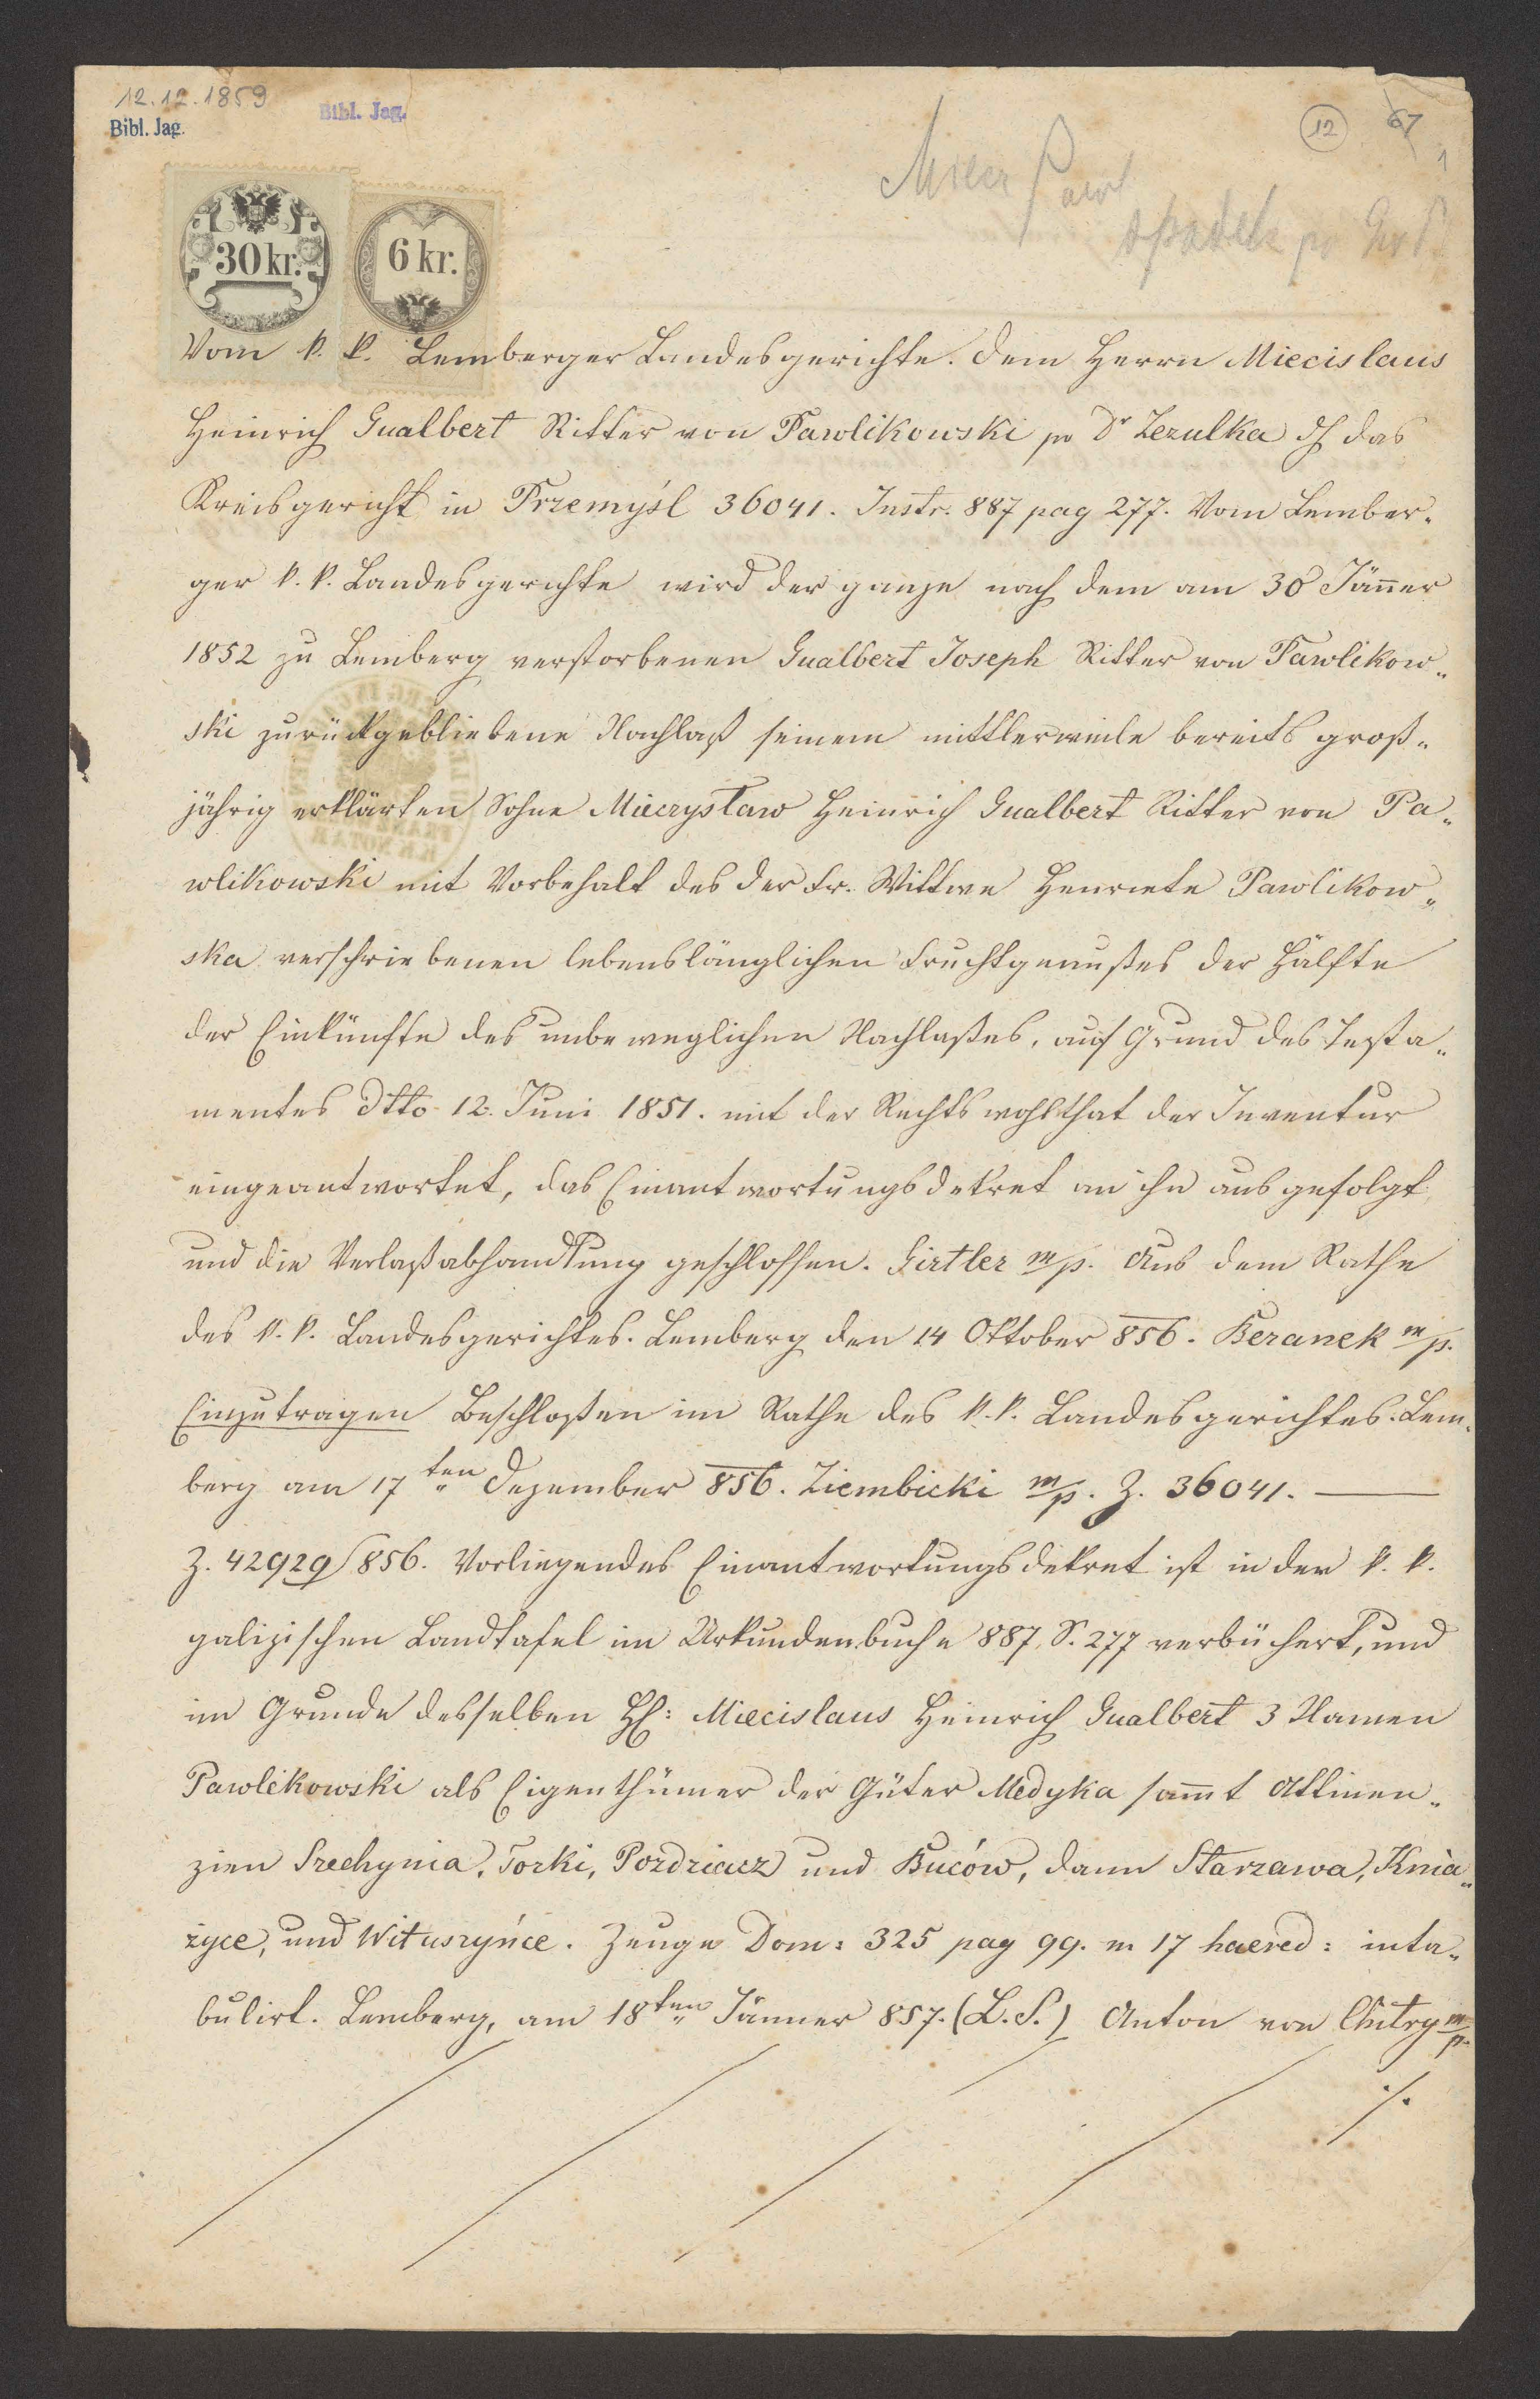 12.12.1859
Bibl. Jag.
Bibl. Jag.
12
67
1
Miecz Pawl
spadek po
30 kr.
6 kr.
Vom k. k. Lemberger Landesgerichte. Dem Herrn Miecislaus
Heinrich Gualbert Ritter von Pawlikowski po Dr Zezulka dh das
Kreisgericht in Przemyśl 36041. Instr. 887 pag 277. Vom Lember„
ger k. k. Landesgerichte wird der ganze nach dem am 30 Jän̄er
1852 zu Lemberg verstorbenen Gualbert Joseph Ritter von Pawlikow„
ski zurückgebliebene Nachlaß seinem mittlerweile bereits groß„
jährig erklärten Sohne Mieczysław Heinrich Gualbert Ritter von Pa„
wlikowski mit Vorbehalt des der Fr. Wittwe Henriete Pawlikow„
ska verschriebenen lebenslänglichen Fruchtgenußes der Hälfte
der Einkünfte des unbeweglichen Nachlaßes, auf Grund des Testa„
mentes dtto 12. Juni 1851. mit der Rechtswohlthat der Inventur
eingeantwortet, das Einantwortungsdekret an ihn ausgefolgt
und die Verlaßabhandlung geschlossen. Girtler m/p. Aus dem Rathe
des k. k. Landesgerichtes. Lemberg den 14 Oktober 856. Beranek m/p.
Einzutragen Beschloßen im Rathe des k. k. Landesgerichtes. Lem„
berg am 17ten Dezember 856. Ziembicki m/p. Z. 36041. —
Z. 42929/856. Vorliegendes Einantwortungsdekret ist in der k. k.
galizischen Landtafel im Urkundenbuche 887, S. 277 verbüchert, und
im Grunde desselben H: Miecislaus Heinrich Gualbert 3 Namen
Pawlikowski als Eigenthümer der Güter Medyka sam̄t Attinen„
zien Szechynia, Torki, Pozdziacz und Buców, dann Starzawa, Knia„
życe, und Wituszyńce. Zeuge Dom: 325 pag 99. n 17 haered: inta„
bulirt. Lemberg, am 18ten Jänner 857. (L. S.) Anton von Chitry m/p.
./.